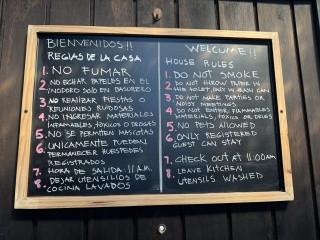 BIENVENIDOS!!
REGLAS DE LA CASA
1. NO FUMAR
2. NO ECHAR PAPELES EN EL
INODORO SOLO EN BASURERO
3. NO REALIZAR FIESTAS O
REUNIONES RUIDOSAS
4. NO INGRESAR MATERIALES
INFLAMABLES, TOXICOS O DROGAS
5. NO SE PERMITEN MASCOTAS
6. UNICAMENTE PUEDEN
PERMANECER HUESPEDES
REGISTRADOS
7. HORA DE SALIDA: 11 A.M.
8. DEJAR UTENSILIOS DE
COCINA LAVADOS
WELCOME!!
HOUSE RULES
1. DO NOT SMOKE
2. DO NOT THROW PAPER IN
THE TOILET, ONLY IN TRASH CAN
3. DO NOT MAKE PARTIES OR
NOISY MEETINGS
4. DO NOT ENTER FLAMMABLES
MATERIALS, TOXIC OR DRUGS
5. NO PETS ALLOWED
6. ONLY REGISTERED
GUEST CAN STAY
7. CHECK OUT AT 11:00AM
8. LEAVE KITCHEN
UTENSILS WASHED